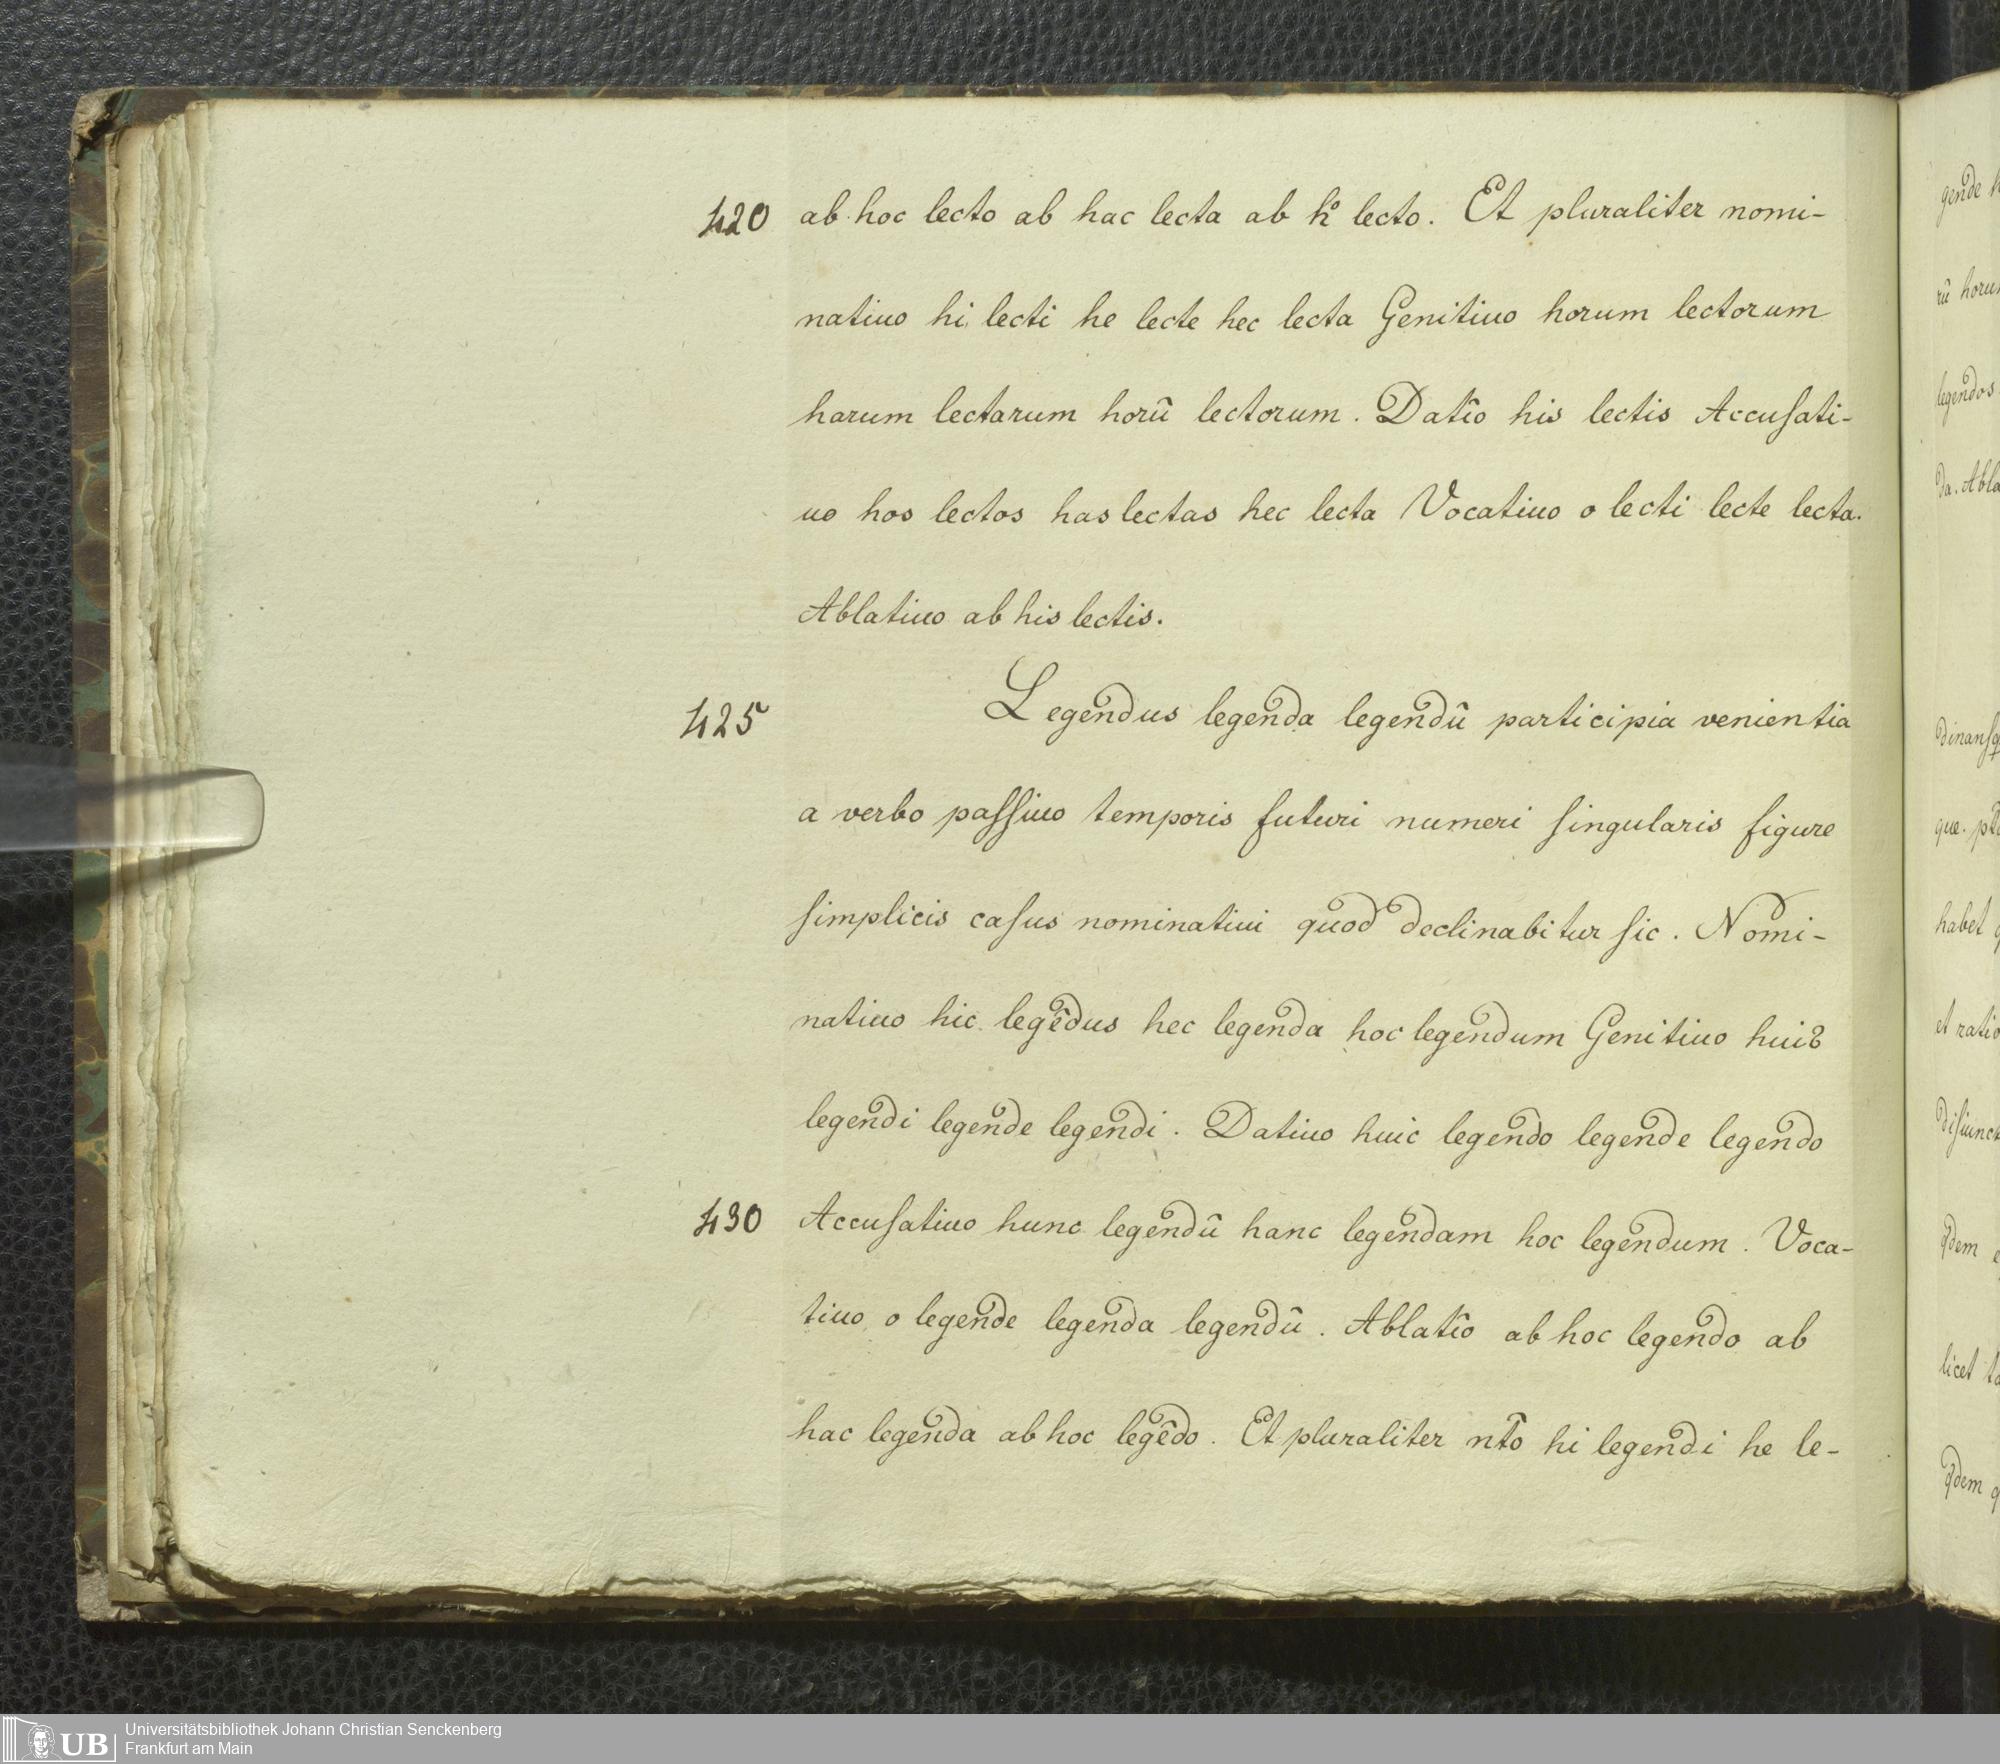 420 ab hoc lecto ab hac lecta ab h° lecto. Et pluraliter nomi-
natiuo hi lecti he lecte hec lecta Genitiuo horum lectorum
harum lectarum horū lectorum. Datīo his lectis Accuſati-
uo hos lectos has lectas hec lecta Vocatiuo o lecti lecte lecta.
Ablatiuo ab his lectis.
425 Legendus legenda legendū participia venientia
a verbo paſſiuo temporis futuri numeri ſingularis figure
ſimplicis caſus nominatiui quod declinabitur ſic. Nomi-
natiuo hic legēdus hec legenda hoc legendum Genitiuo huiꝰ
legendi legende legendi. Datiuo huic legendo legende legendo
430 Accuſatiuo hunc legendū hanc legendam hoc legendum. Voca-
tiuo o legende legenda legendū. Ablatīo ab hoc legendo ab
hac legenda ab hoc legēdo. Et pluraliter nt̄o hi legendi he le-
gende
rū
legendos
da.
que.
habet
et
licet
UB Universitätsbibliothek Johann Christian Senckenberg
Frankfurt am Main